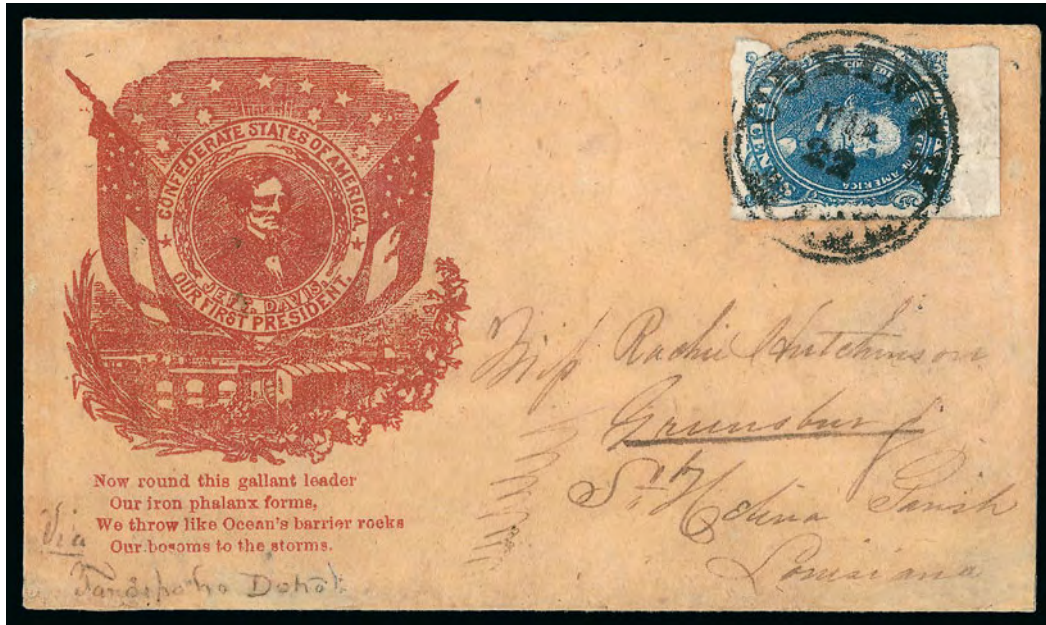 CONFEDERATE STATES OF AMERICA
JEFF. DAVIS
OUR FIRST PRESIDENT.
Now round this gallant leader
Our iron phalanx forms,
We throw like Ocean's barrier rocks
Our bosoms to the storms.
Via
22
AMERICA
Miss Rachie Hutchinson
Greensburg
St. Helena Parish
Louisiana